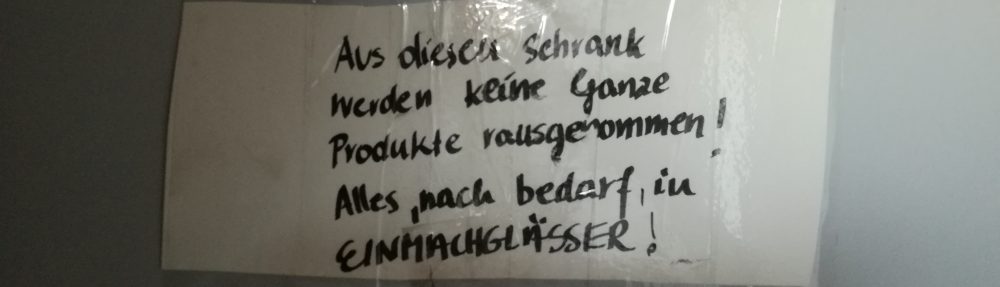 Aus diesen Schrank
werden keine Ganze
Produkte rausgenommen!
Alles, nach bedarf, in
EINMACHGLÄSSER!